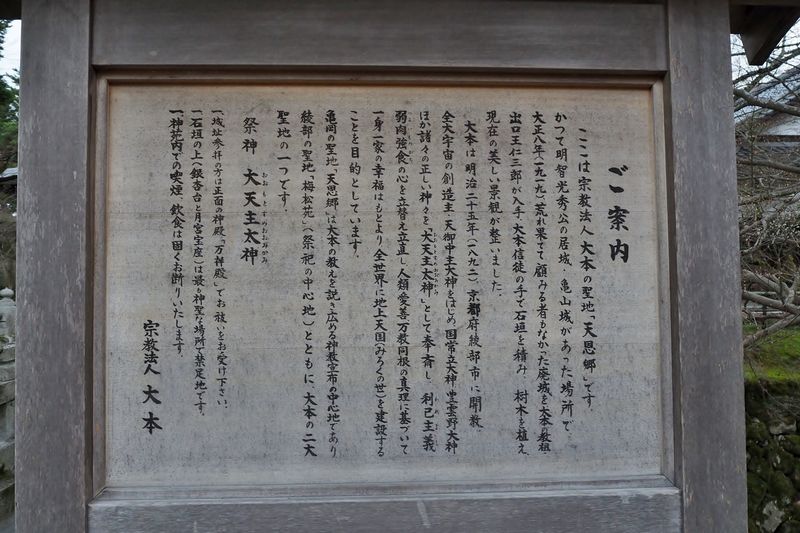 ご案内
ここは宗教法人大本の聖地「天恩郷」です。
かつて明智光秀公の居城・亀山城があった場所で、
大正八年(一九一九)荒れ果てて顧みる者もなかった廃城を大本の教祖・
出口王仁三郎が入手、大本信徒の手で石垣を積み、樹木を植え、
現在の美しい景観が整いました。
大本は明治二十五年(一八九二)京都府綾部市に開教。
全大宇宙の創造主・天御中主大神をはじめ、国常立大神、豊雲野大神
ほか諸々の正しい神々を「大天主太神」として奉斎し、利己主義
弱肉強食の心を立替え立直し、人類愛善・万教同根の真理に基づいて
一身一家の幸福はもとより、全世界に地上天国(みろくの世)を建設する
ことを目的としています。
亀岡の聖地「天恩郷」は大本の教えを説き広める神教宣布の中心地であり
綾部の聖地「梅松苑」(祭祀の中心地)とともに、大本の二大
聖地の一つです。
祭神 大天主太神
おおもとすめおおみかみ
一、城址参拝の方は正面の神殿「万祥殿」でお祓いをお受け下さい。
一、石垣の上(銀杏台と月宮宝座)は最も神聖な場所で禁足地です。
一、神苑内での喫煙、飲食は固くお断りいたします。
宗教法人 大本